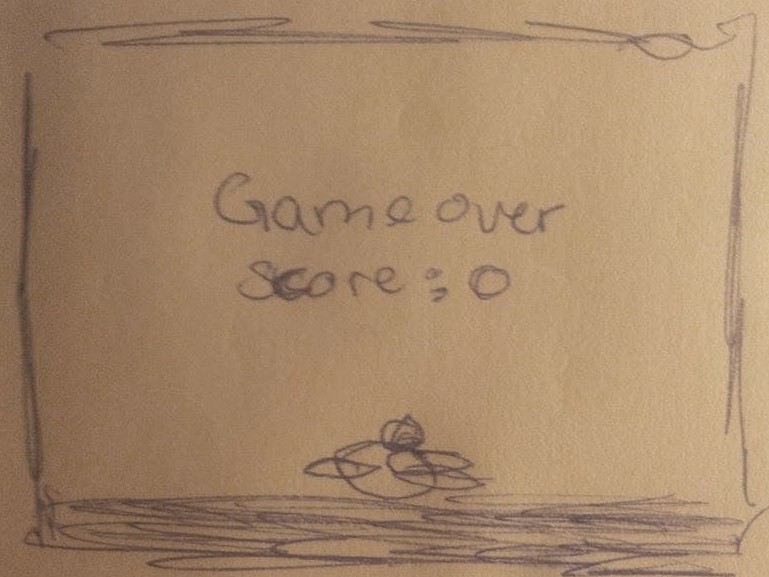 Game over
score : 0